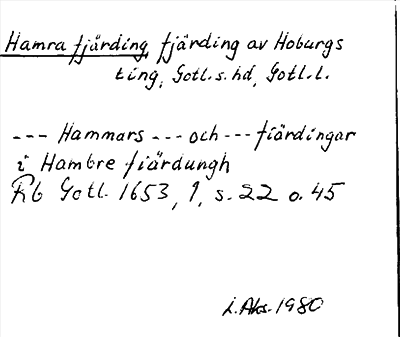 Hamra fjärding, fjärding av Hoburgs
ting, Gotl. s. hd, Gotl. l.
--- Hammars --- och --- fiärdingar
i Hambre fiärdungh
Rb Gotl. 1653, 1, s. 22 o. 45
1980